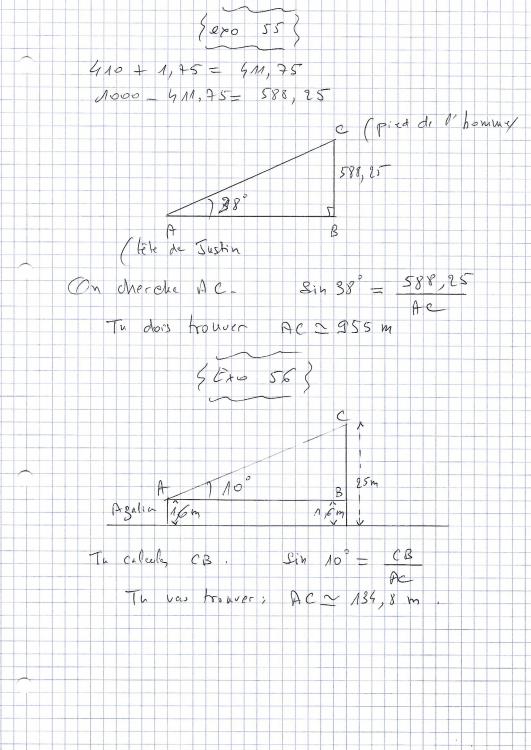 exo 55
410 + 1,75 = 411,75
1000 - 411,75 = 588,25
C (pied de l'homme)
588,25
38°
A
B
(tête de Justin
On cherche AC. sin 38° = 588,25 / AC
Tu dois trouver AC ≃ 955 m
Exo 56
C
A
10°
25m
B
Agalia
1,6m
1,6m
Tu calcules CB. sin 10° = CB / AC
Tu vas trouver: AC ≃ 134,8 m.